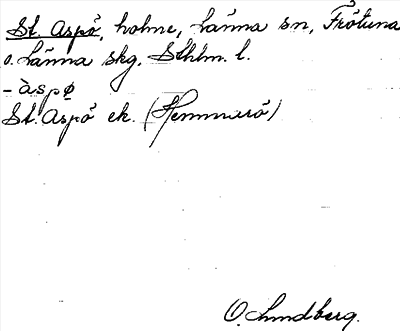 St. Aspö, holme, Länna sn, Frötuna
o. Länna skg. Sthlm. l.
- àspø
St. Aspö ek. (Hemmarö)
O. Lundberg.